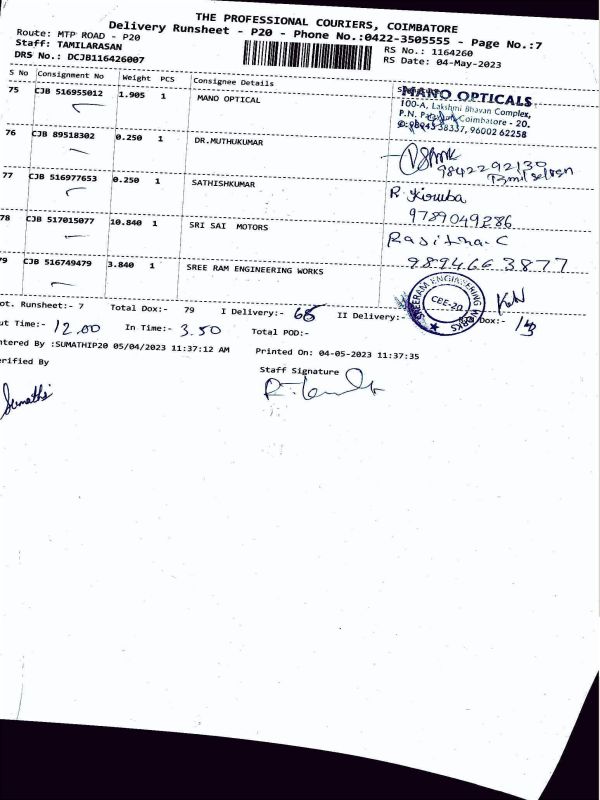 THE PROFESSIONAL COURIERS, COIMBATORE
Delivery Runsheet - P20 - Phone No.:0422-3505555 - Page No.:7
Route: MTP ROAD - P20
Staff: TAMILARASAN
DRS No.: DCJB116426007
RS No.: 1164260
RS Date: 04-May-2023
S No Consignment No Weight PCS Consignee Details
75 CJB 516955012 1.905 1 MANO OPTICAL
MANO OPTICALS
100-A, Lakshmi Bhavan Complex,
Coimbatore - 20.
38337, 96002 62258
76 CJB 89518302 0.250 1 DR.MUTHUKUMAR
9842292130
77 CJB 516977653 0.250 1 SATHISHKUMAR
9789049286
78 CJB 517015077 10.840 1 SRI SAI MOTORS
9894663877
79 CJB 516749479 3.840 1 SREE RAM ENGINEERING WORKS
SREERAM ENGINEERING WORKS
CBE-20
ot. Runsheet:- 7 Total Dox:- 79 I Delivery:- 68 II Delivery:- Dox:-
ut Time:- 12.00 In Time:- 3.50 Total POD:-
ntered By :SUMATHIP20 05/04/2023 11:37:12 AM Printed On: 04-05-2023 11:37:35
erified By
Staff Signature
Sumathi